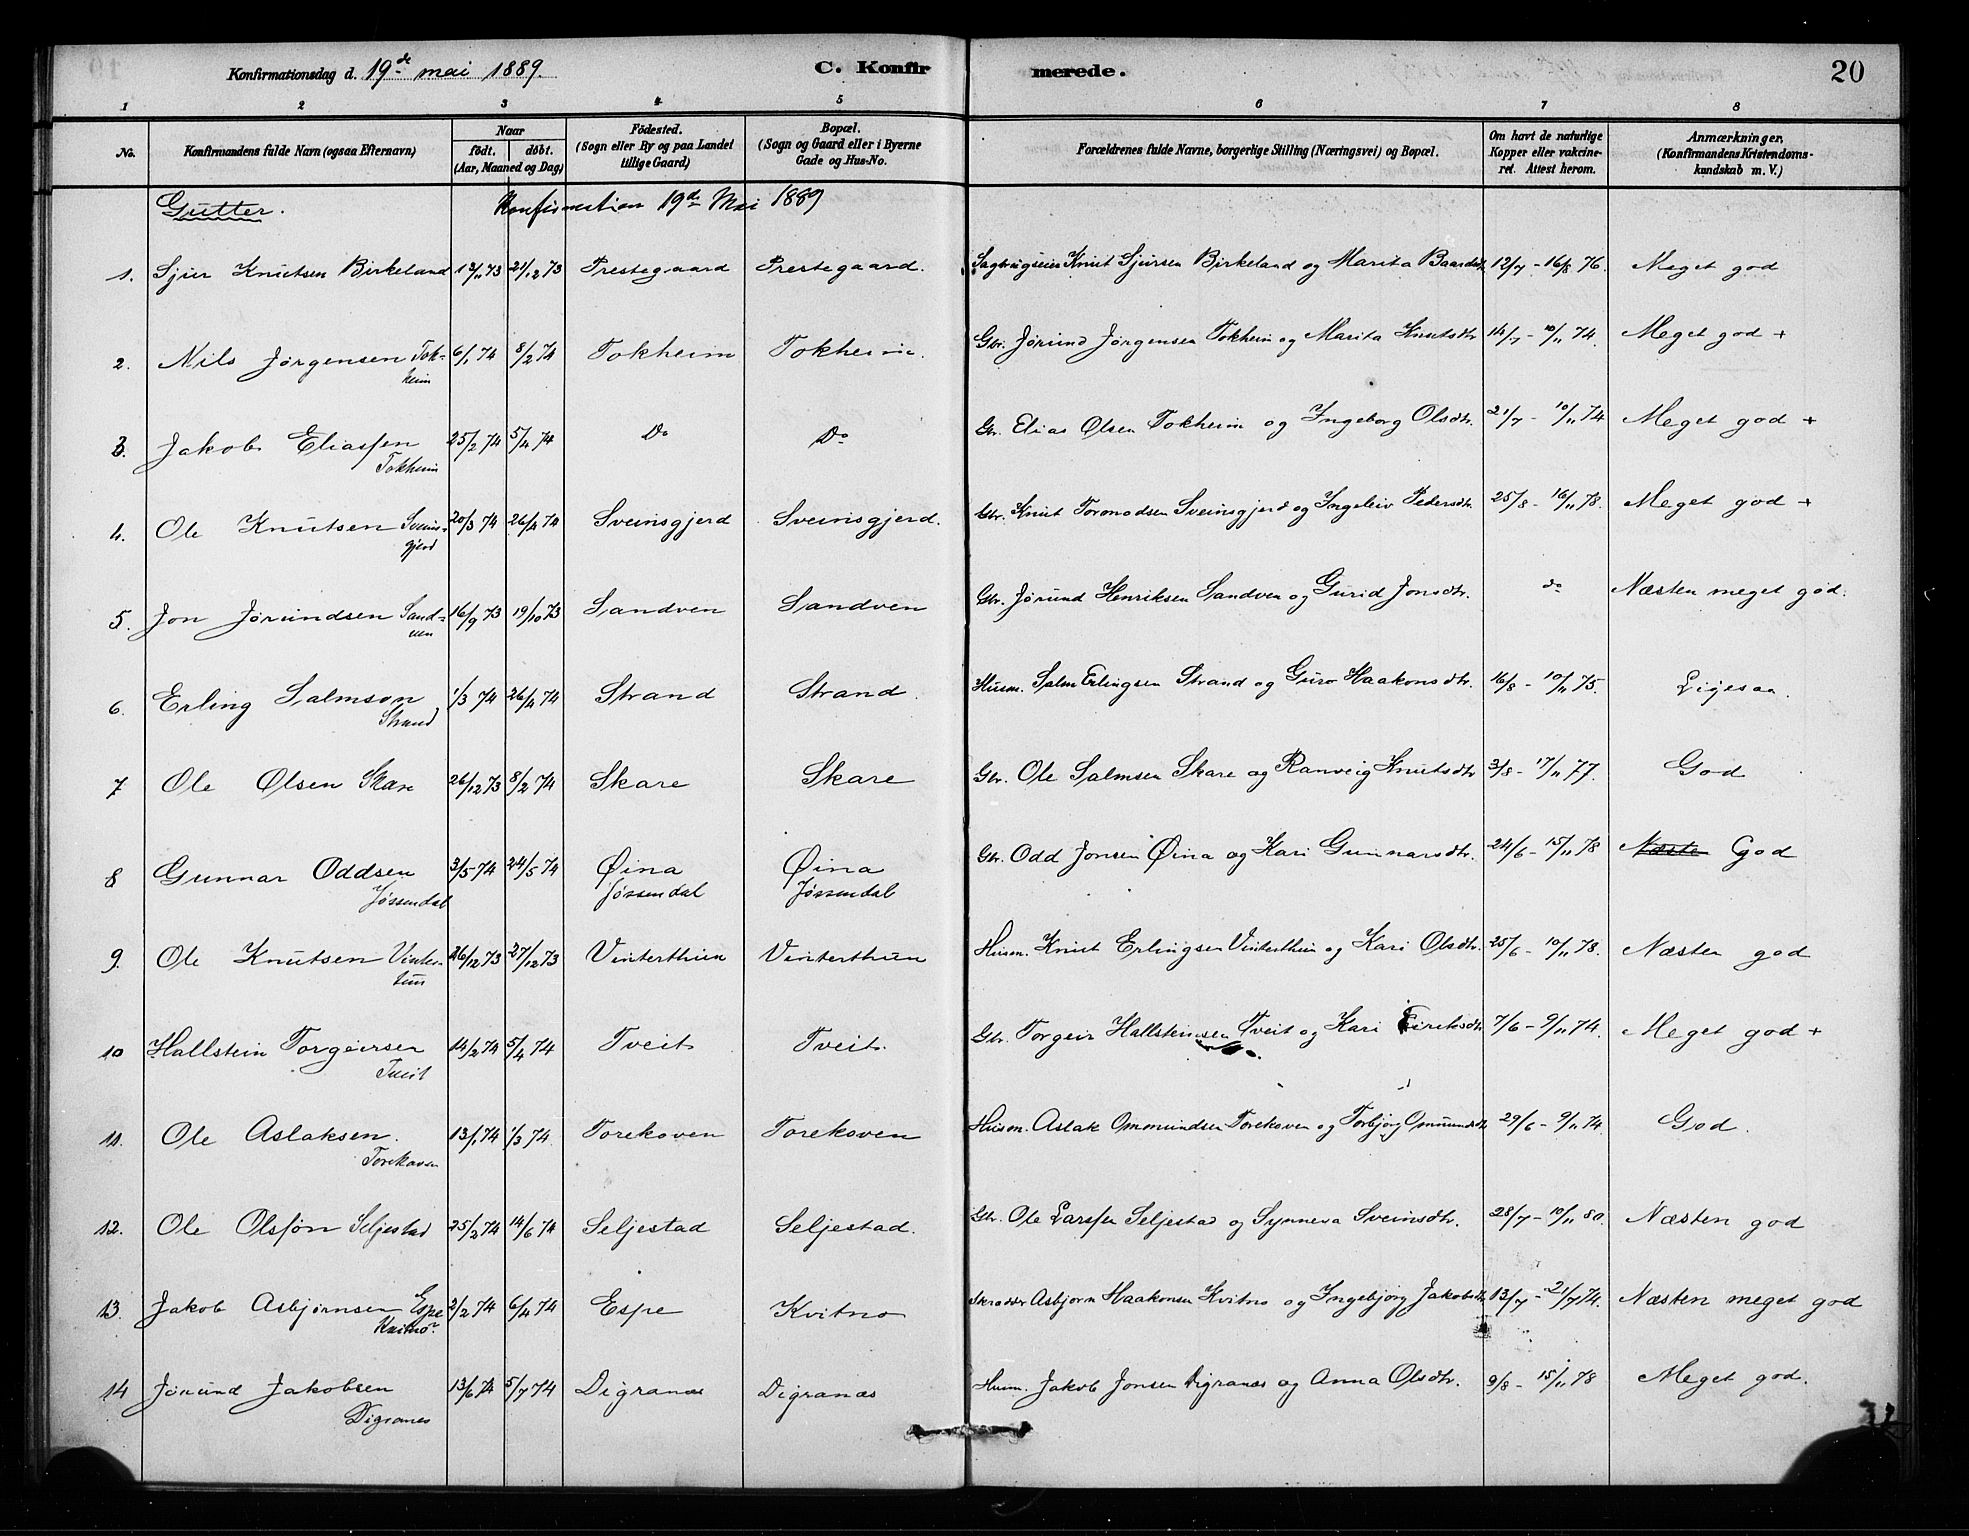 Konfirmationsdag d. 19de mai 1889. C. Konfirmerede. 20
1 2 3 4 5 6 7 8
No. Konfirmandens fulde Navn (ogsaa Efternavn) Naar födt. döbt. (Aar, Maaned og Dag) Födested. (Sogn eller By og paa Landet tillige Gaard) Bopæl. (Sogn og Gaard eller i Byerne Gade og Hus-No. Forældrenes fulde Navne, borgerlige Stilling (Næringsvei) og Bopæl. Om havt de naturlige Kopper eller vakcineret. Attest herom. Anmærkninger, (Konfirmandens Kristendomskundskab m. V.)
Gutter. Konfirmation 19de Mai 1889
1. Sjur Knutsen Birkeland 21/12 73 Prestegaard Prestegaard. Knut Sjursen Birkeland og Marita Baardsdtr. 12/7 - 16/8 76. Meget god
2. Nils Jørgensen Tokheim 6/1 74 8/2 74 Tokheim Tokheim. Gbr. Jørund Jørgensen Tokheim og Marita Knutsdtr 14/7 - 10/11 74. Meget god +
3. Jakob Eliassen Tokheim 25/2 74 5/4 74 Do Do Gbr. Elias Olsen Tokheim og Ingeborg Olsdtr. 21/7 - 10/11 74 Meget god +
4. Ole Knutsen Sveinsgjerd 20/3 74 26/4 74 Sveinsgjerd Sveinsgjerd. Gbr. Knut Toromodsen Sveinsgjerd og Ingeleiv Pedersdtr. 25/8 - 16/11 78. Meget god +
5. Jon Jørundsen Sandven 16/9 73 19/10 73 Sandven Sandven Gbr. Jørund Henriksen Sandven og Gurid Jonsdtr. do Næsten meget god.
6. Erling Salmson Strand 1/3 74 26/4 74 Strand Strand. Husm. Salm Erlingsen Strand og Guro Haakonsdtr. 16/8 - 10/11 75. Ligesaa.
7 Ole Olsen Skare 26/12 73 8/2 74 Skare Skare Gbr. Ole Salmsen Skare og Ranveig Knutsdtr 3/8 - 17/11 77. God
8 Gunnar Oddsen Jøssendal 3/5 74 24/5 74 Øina Jøssendal Øina Jøssendal Gbr. Odd Jonsen Øina og Kari Gunnarsdtr. 24/6 - 15/11 78 Næste God
9. Ole Knutsen Vintertun 26/12 73 27/12 73 Vinterthun Vinterthun Husm. Knut Erlingsen Vinterthun og Kari Olsdtr. 25/6 - 10/11 78. Næsten god
10 Hallstein Torgeirsen Tveit 14/2 74 5/4 74 Tveit Tveit. Gbr. Torgeir Hallsteinsen Tveit og Kari Eiriksdtr 7/6 - 9/11 74. Meget god +
11. Ole Aslaksen. Torekoven 13/1 74 1/3 74. Torekoven Torekoven Husm. Aslak Ommundsen Torekoven og Torbjørg Omundsdtr 29/6 - 9/11 74. God.
12. Ole Olsson Seljestad 25/2 74 14/6 74 Seljestad Seljestad. Gbr. Ole Larssen Seljestad og Synneva Sveinsdtr. 28/7 - 10/11 80. Næsten god
13 Jakob Asbjørnsen Espe Kvitno 2/2 74 6/4 74 Espe Kvitno Skrædder Asbjørn Haakonsen Kvitno og Ingebjørg Jakobsdtr 13/7 - 21/7 74. Næsten meget god
14 Jørund Jakobsen Digranes 13/6 74 5/7 74 Digranæs Digranæs Husm. Jakob Jonsen Digranæs og Anna Olsdtr. 9/8 - 15/11 78 Meget god.